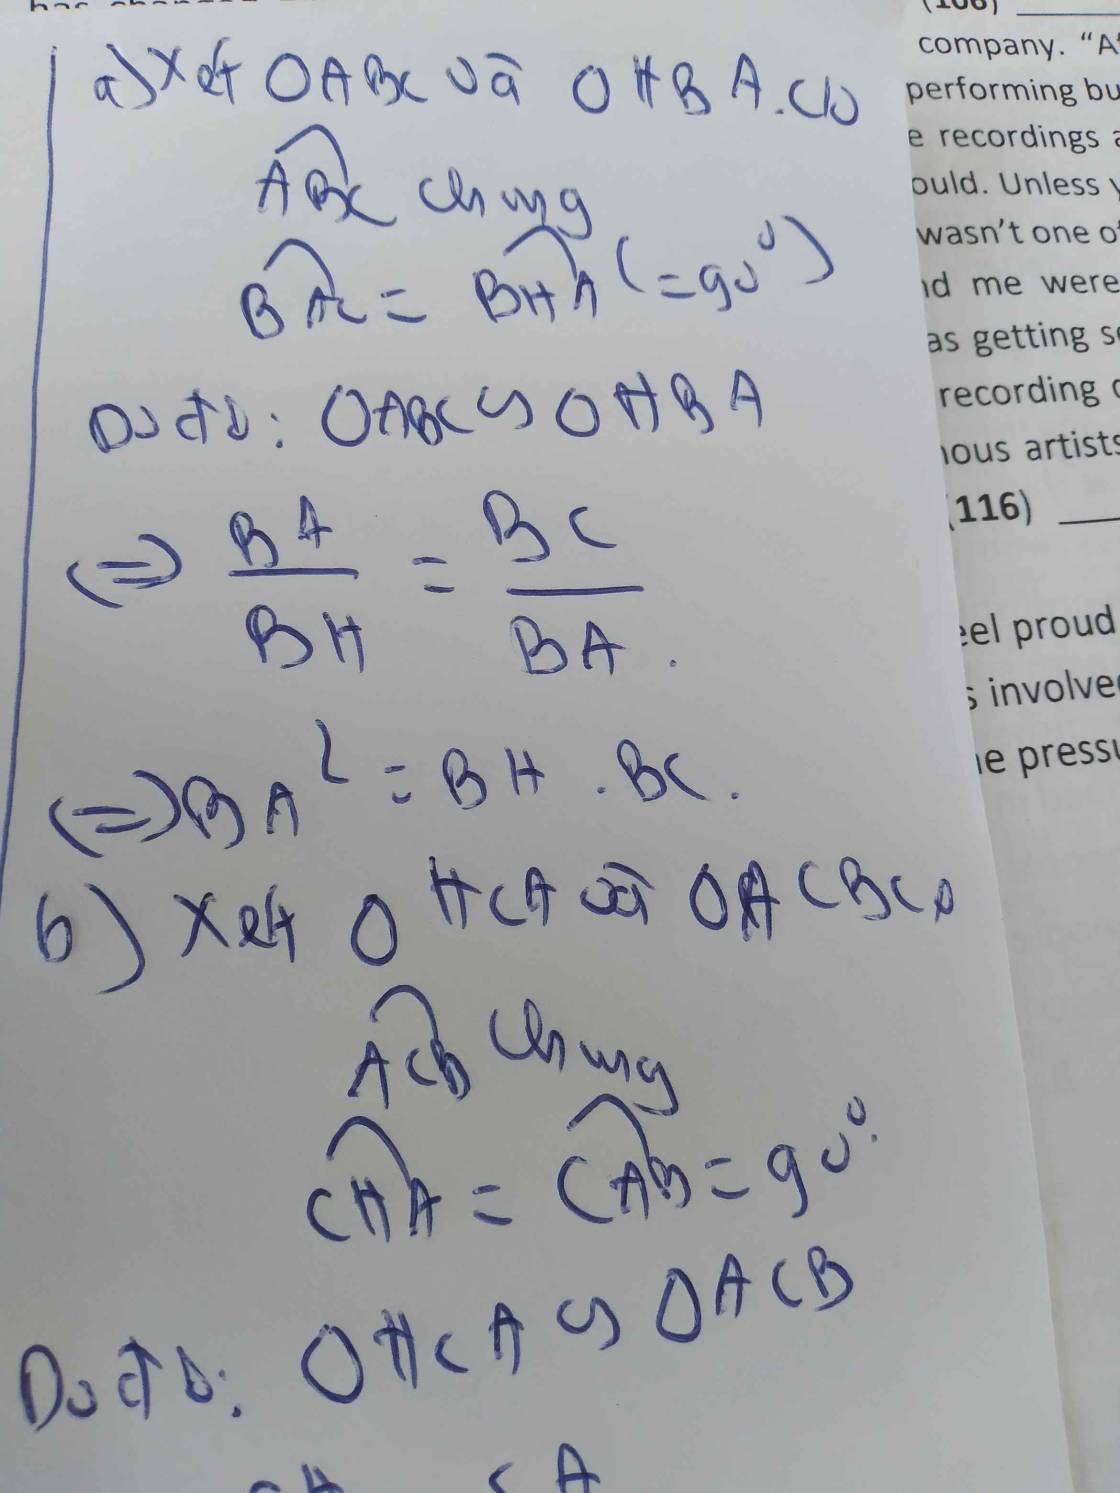 a) Xét △ABC và △HBA. Có
ABC chung
BAC = BHA (=90°)
Do đó: △ABC ∽ △HBA
(=) BA/BH = BC/BA.
(=) BA² = BH . BC.
b) Xét △HCA và △ACB Có
ACB chung
CHA = CAB = 90°.
Do đó: △HCA ∽ △ACB
CH CA
(106)
company. “A
performing bu
e recordings a
ould. Unless y
wasn’t one of
nd me were
as getting s
recording
nous artists
(116)
eel proud
s involve
he pressu